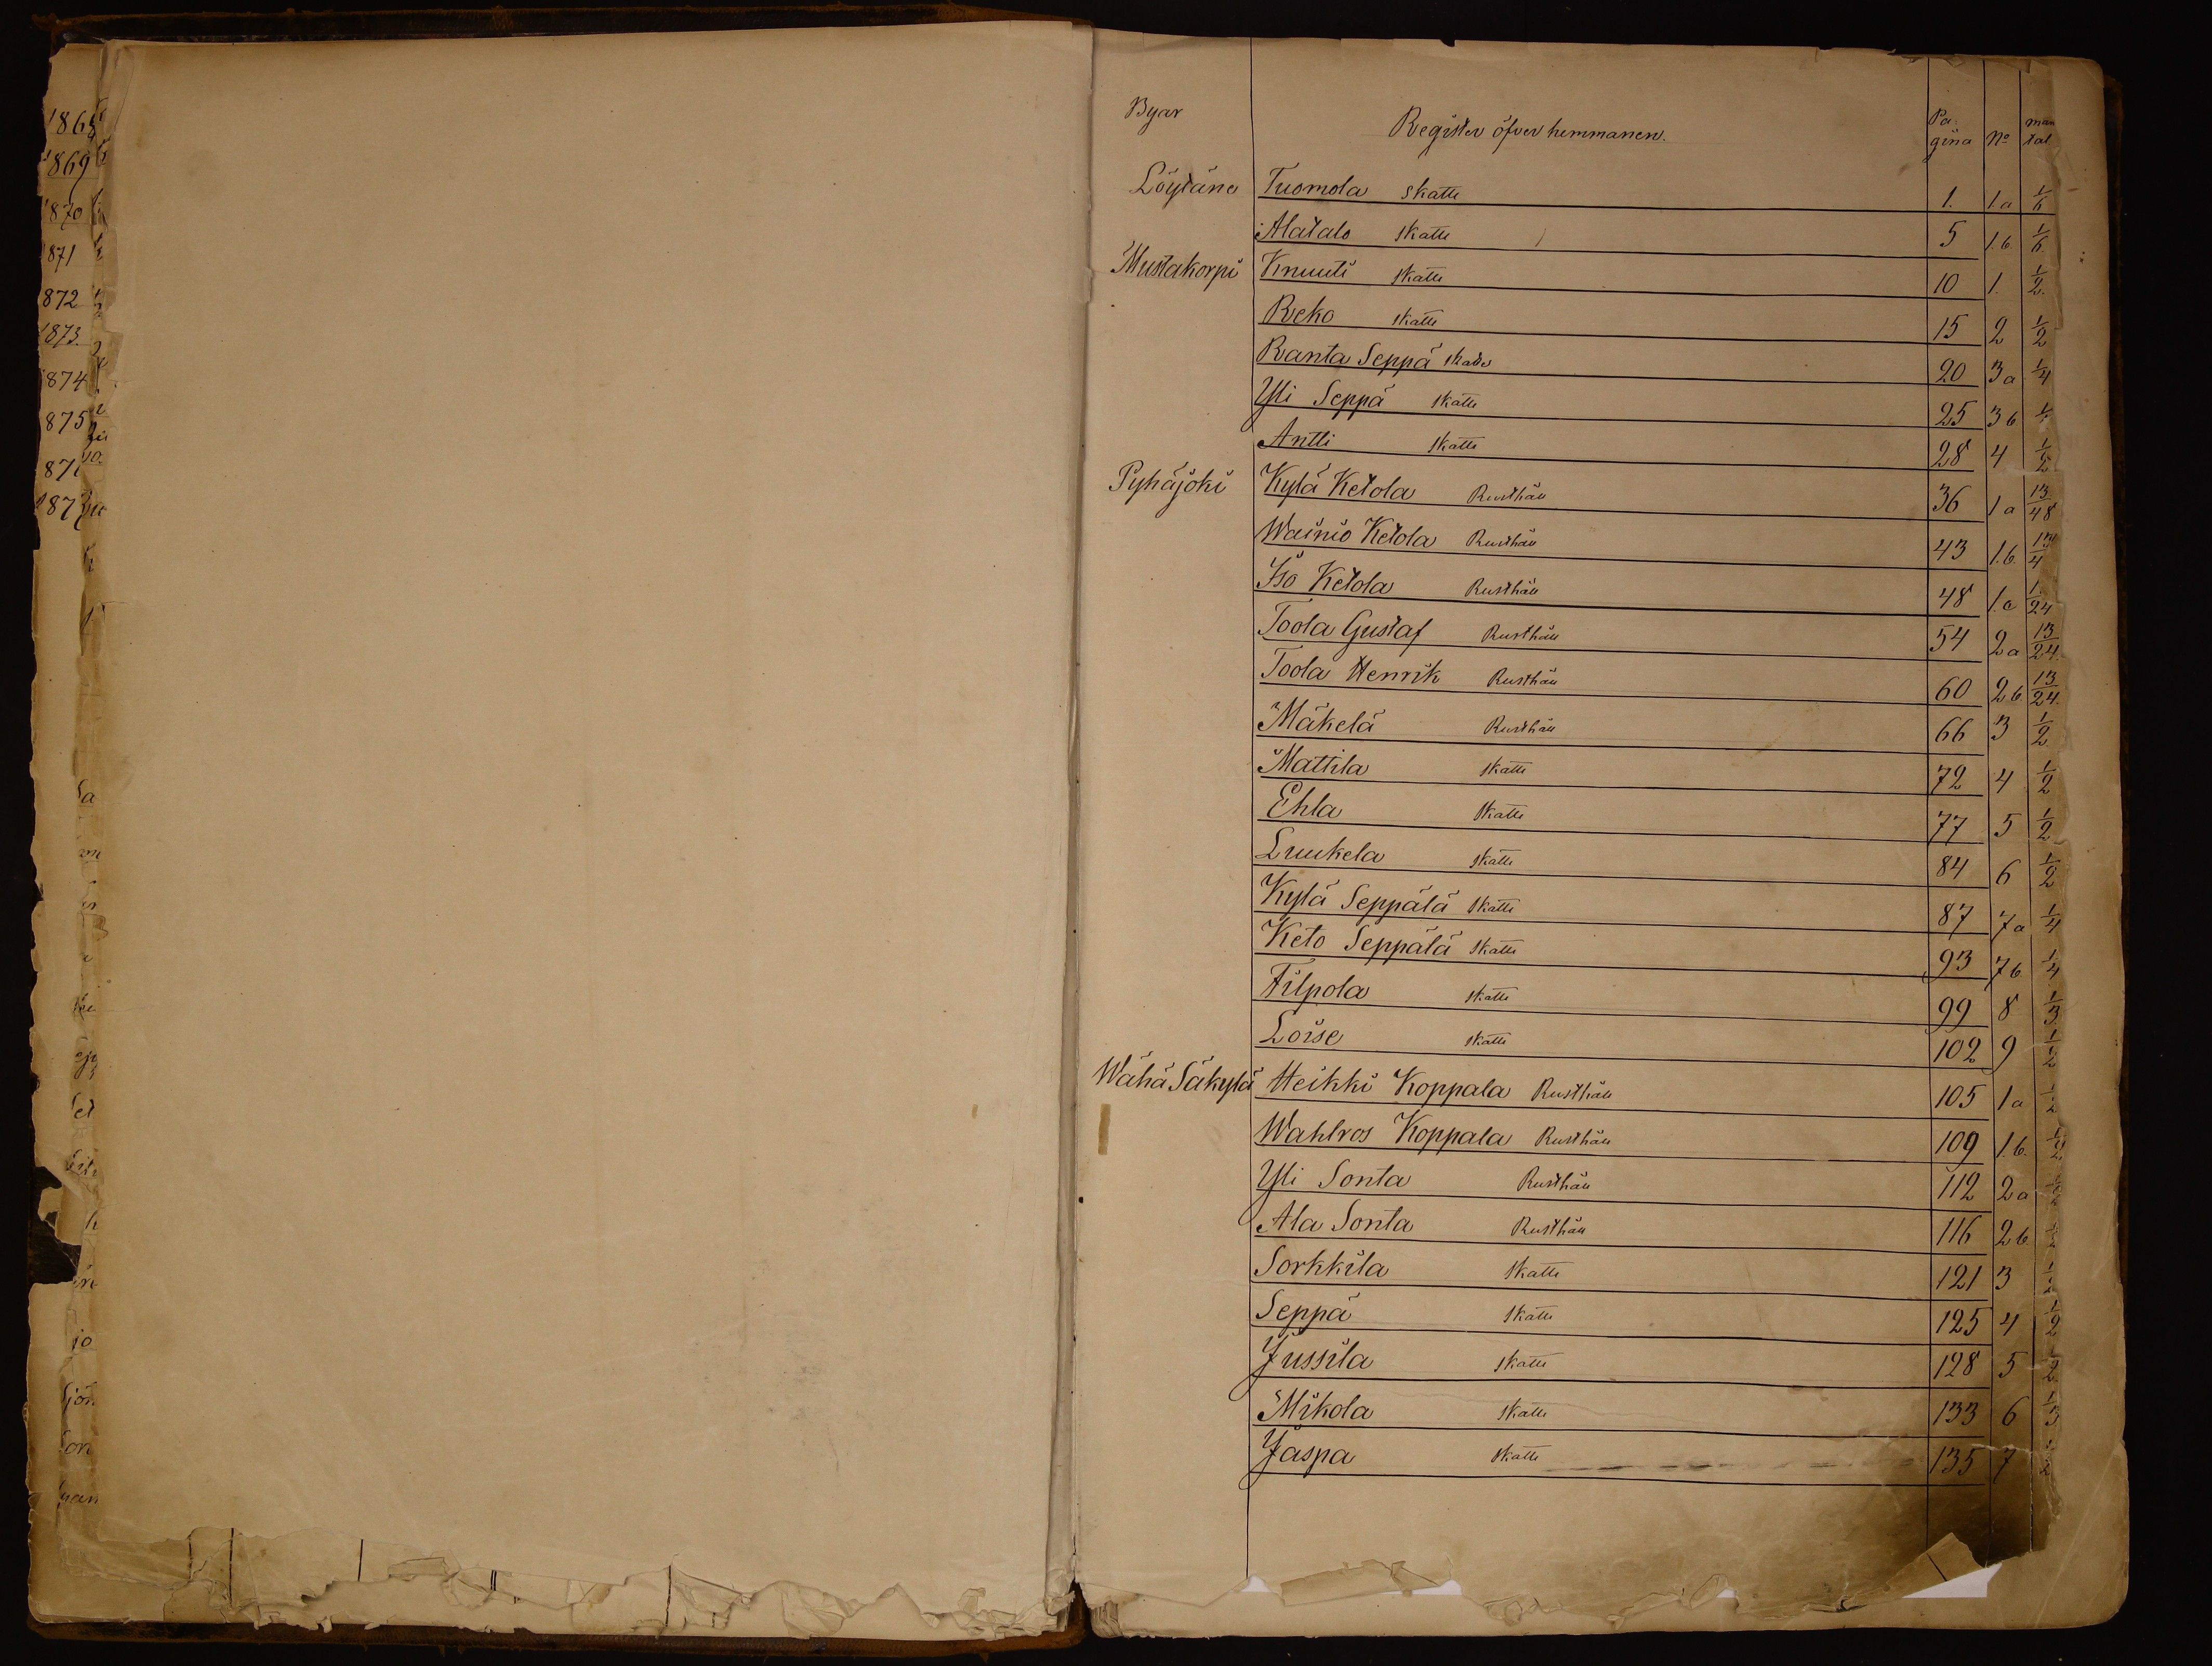 1869
1870
1871
1872
1873.
1874
1875
Byar Register öfver hemmanen. Pa-gina No mantal
Löytäne Tuomola skatte 1. 1.a 1/6
Alatalo skatte 5 1.b. 1/6
Mustakorpi Knuuti skatte 10 1. 1/2.
Reko skatte 15 2 1/2
Ranta Seppä skatte 20 3a 1/4
Yli Seppä skatte 25 3b
Antti skatte 28 4 1/2
Pyhäjoki Kylä Ketola Rusthåll 36 1a 13/48
Wainio Ketola Rusthåll 43 1.b. 13/4
Iso Ketola Rusthåll 48 1.c 1./24
Toola Gustaf Rusthåll 54 2a 13/24.
Toola Henrik Rusthåll 60 2b. 13/24.
Mäkelä Rusthåll 66 3 1/2
Mattila skatte 72 4 1/2
Ehla skatte 77 5 1/2
Luukela skatte 84 6 1/2
Kylä Seppälä skatte 87 7a 1/4
Keto Seppälä skatte 93 7b 1/4
Filpola skatte 99 8 1/3
Loise skatte 102 9 1/2
Wähä Säkylä Heikki Koppala Rusthåll 105 1a 1/2
Wahlros Koppala Rusthåll 109 1.b. 1/2
Yli Sonta Rusthåll 112 2a 1/2
Ala Sonta Rusthåll 116 2b. 1/2
Sorkkila skatte 121 3 1/2
Seppä skatte 125 4 1/2
Jussila skatte 128 5 1/2
Mikola skatte 133 6 1/3
Jaspa skatte 135 7